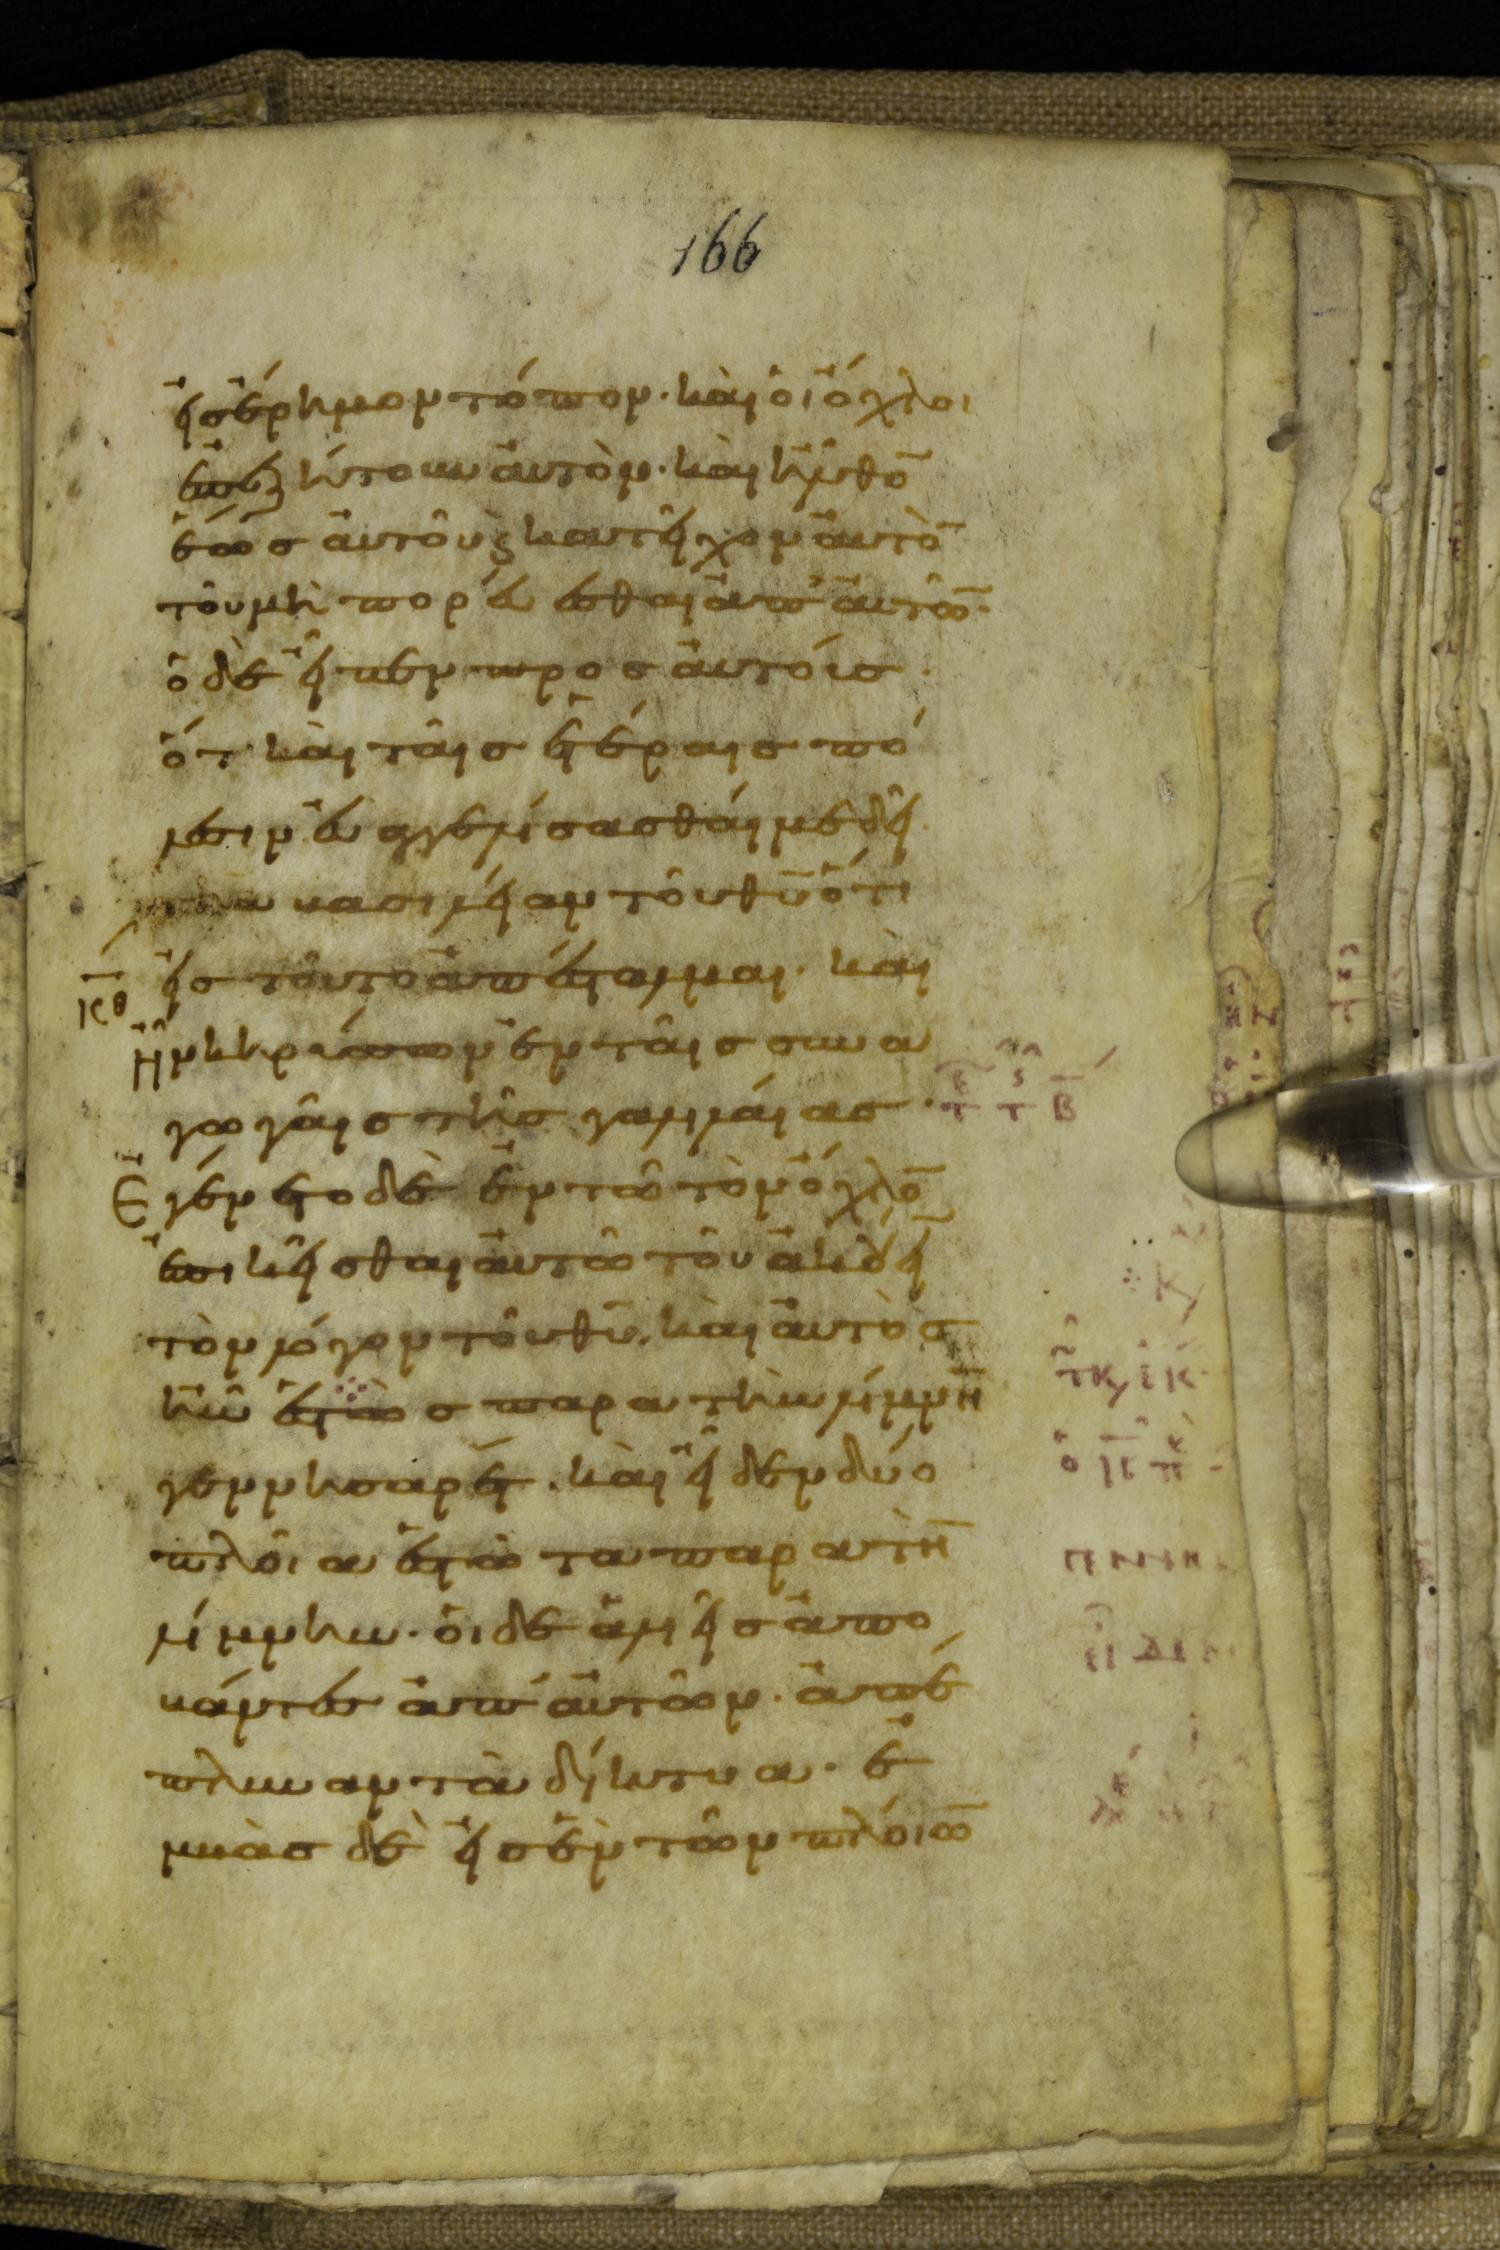 166
εἰς ἔρημον τόπον· καὶ οἱ ὄχλοι
ἐπεζήτουν αὐτὸν· καὶ ἦλθο̄
ἕως αὐτοῦ ς κατεῖχον αὐτὸ̄
τοῦ μὴ πορεύεσθαι ἀπ' αὐτῶ̄·
ὁ δὲ εἶπεν προς αὐτούς·
ὅτι καὶ ταῖς ἑτέραις πό
λεσιν εὐαγγελίσασθαί με δεῖ
τὴν βασιλείαν τοῦ θῡ ὅτι
εἰς τοῦτο ἀπέσταλμαι· καὶ
κθ
Ἦν κηρύσσων ἐν ταῖς συνα
γωγαῖς τῆς γαλιλαίας·
Ἐγένετο δὲ ἐν τῶ τὸν ὄχλο̄
ἐπικεῖσθαι αὐτῶ τοῦ ἀκούεῑ
τὸν λόγον τοῦ θῡ· καὶ αὐτὸς
ἦν ἑστὼς παρα τὴν λίμνη̄
γεννησαρέτ· καὶ εἶδεν δύο
πλοῖα ἑστῶτα παρα τὴ̄
λίμνην· οἱ δὲ ἁλιεῖς ἀπο
βάντες ἀπ' αὐτῶν· ἀπέ
πλυναν τὰ δίκτυα· ἐμ
βὰς δὲ εἰς ἓν τῶν πλοίω̄